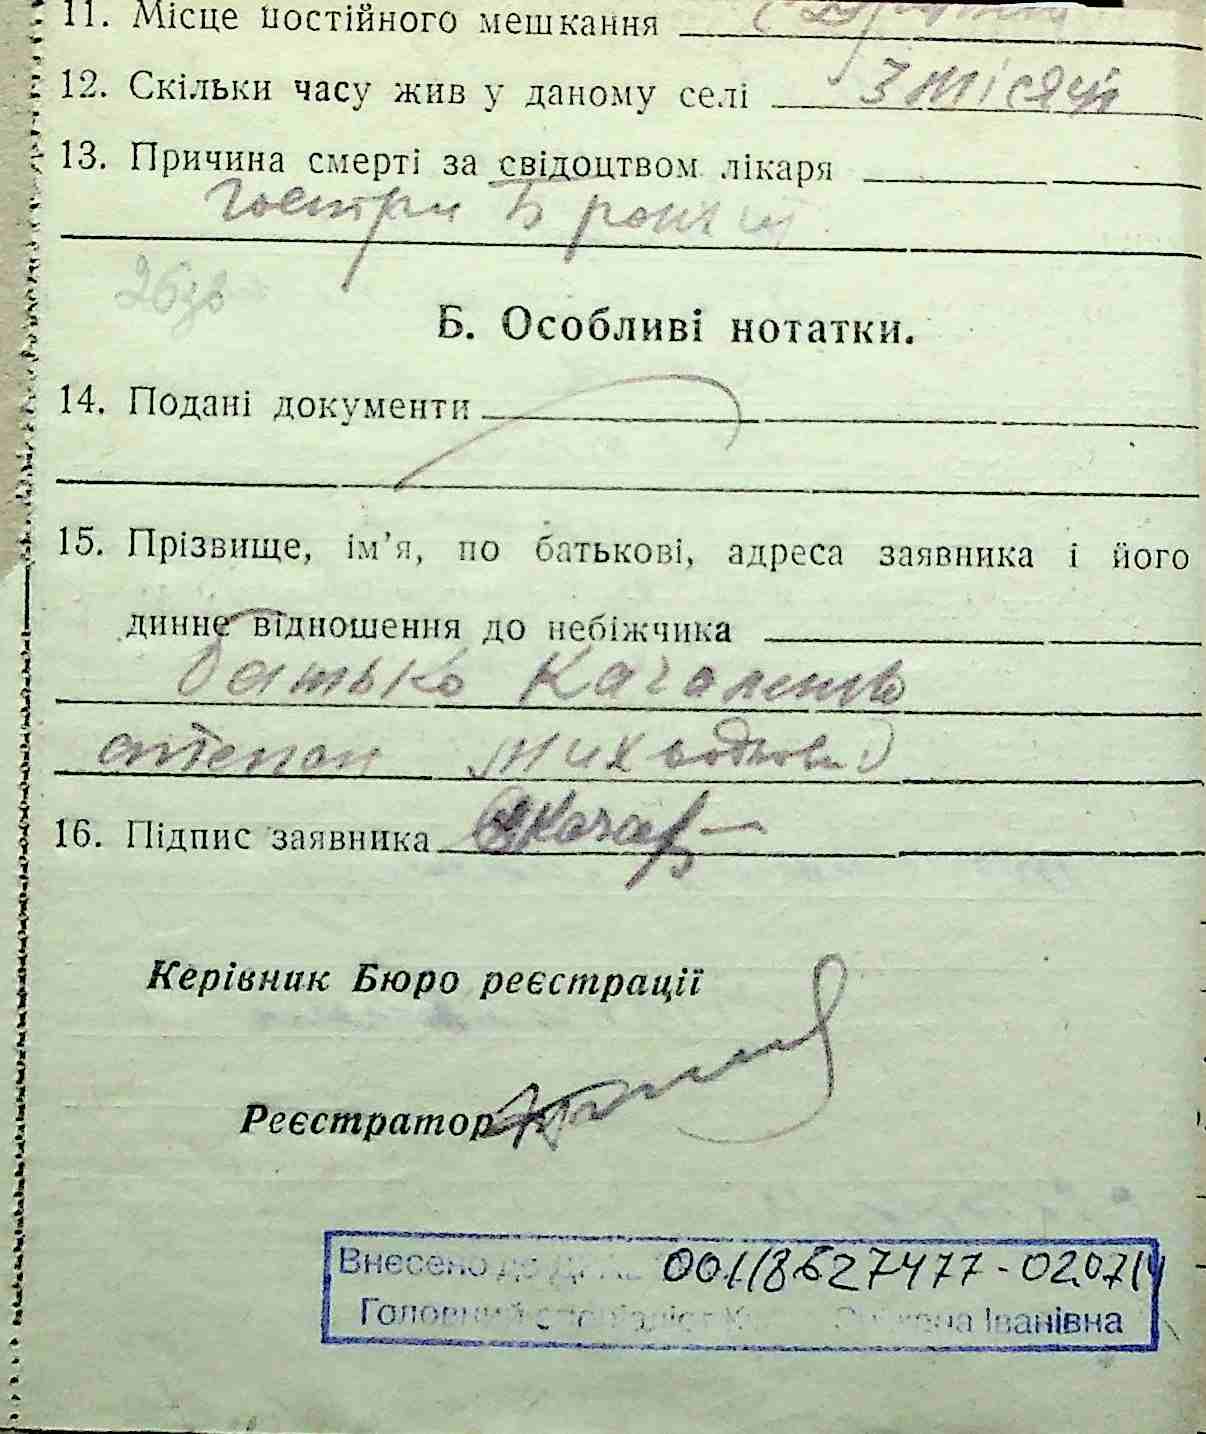 11. Місце постійного мешкання
12. Скільки часу жив у даному селі 3 місяці
13. Причина смерті за свідоцтвом лікаря
гостри бронхит
Б. Особливі нотатки.
14. Подані документи
15. Прізвище, ім'я, по батькові, адреса заявника і його
динне відношення до небіжчика
батько Качаленко
степан
16. Підпис заявника
Керівник Бюро реєстрації
Реєстратор
Внесено до
Головний спеціаліст Іванівна